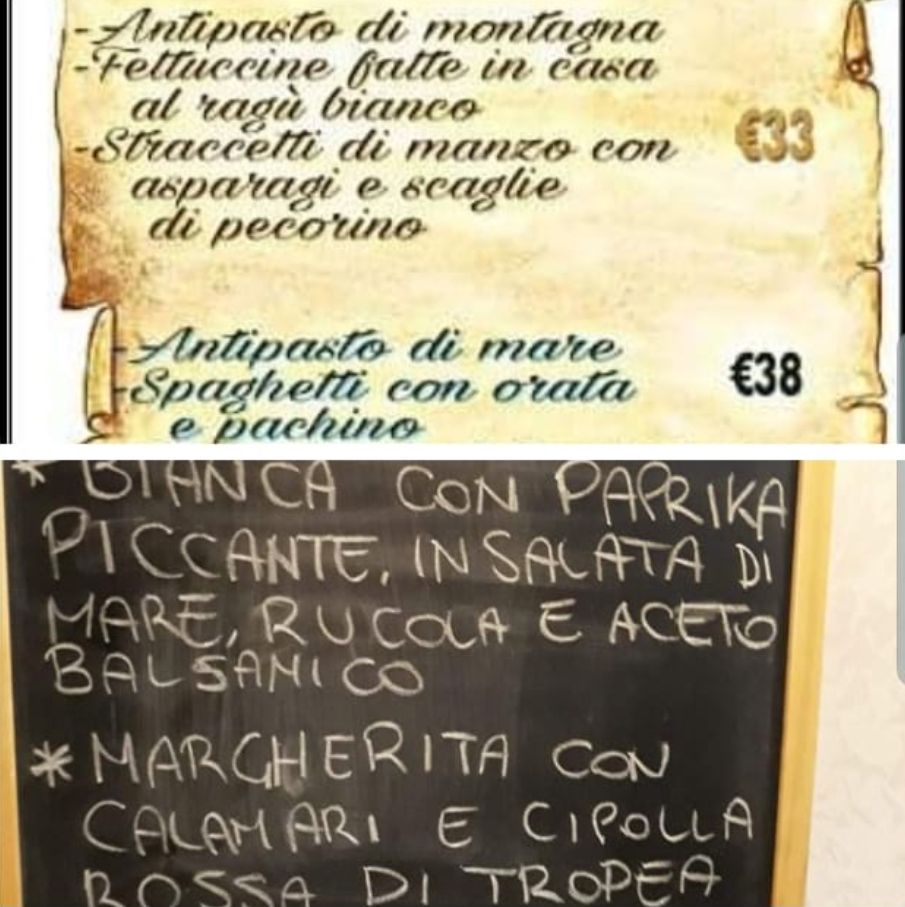 -Antipasto di montagna
-Fettuccine fatte in casa
al ragù bianco
-Straccetti di manzo con
€33
asparagi e scaglie
di pecorino
-Antipasto di mare
€38
-Spaghetti con orata
e pachino
* BIANCA CON PAPRIKA
PICCANTE, INSALATA DI
MARE, RUCOLA E ACETO
BALSAMICO
* MARGHERITA CON
CALAMARI E CIPOLLA
ROSSA DI TROPEA